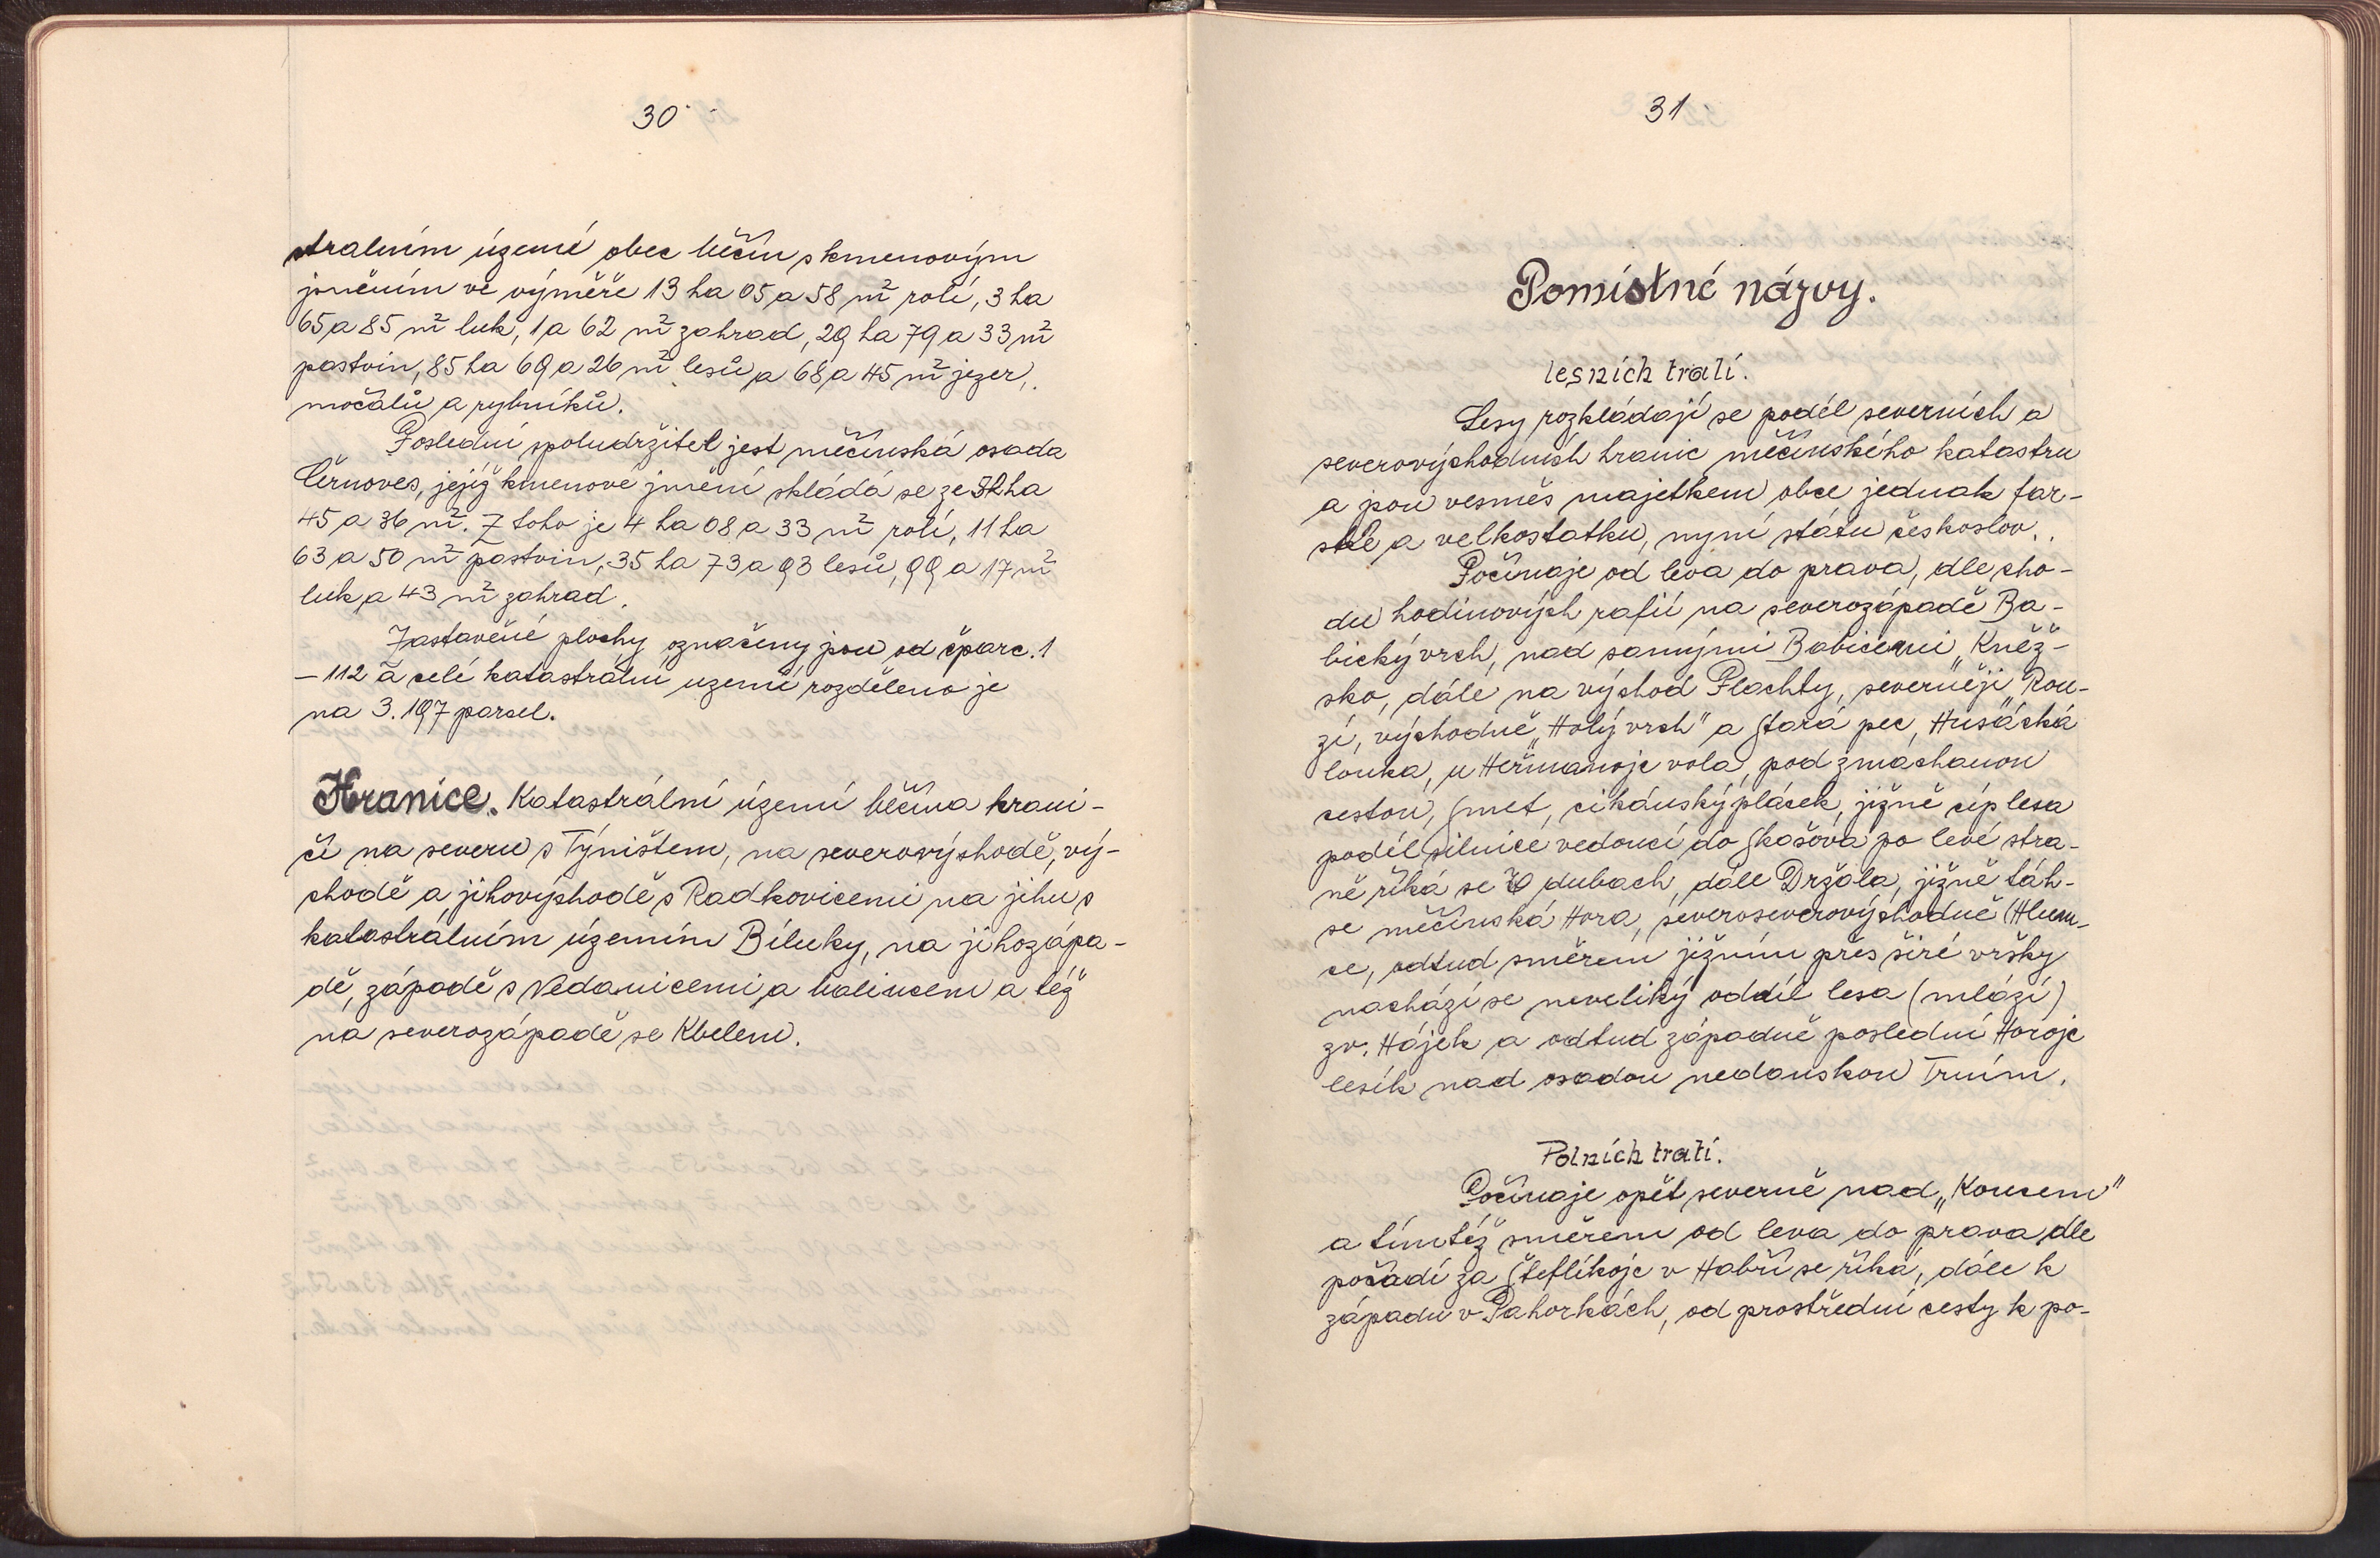 30
stralním území obec Měčín s kmenovým
jměním ve výměře 13 ha 05 a 58 m² rolí, 3 ha
65 a 85 m² luk, 1 a 62 m² zahrad, 29 ha 79 a 33 m²
pastvin, 85 ha 69 a 26 m² lesů a 68 a 45 m² jezer,
močálů a rybníků.
Poslední spoludržitel jest měčínská osada
Černoves, jejíž kmenové jmění skládá se ze ha
45 a 36 m². Z toho je 4 ha 08 a 33 m² rolí, 11 ha
63 a 50 m² pastvin, 35 ha 73 a 93 lesů, 99 a 17 m²
luk a 43 m² zahrad.
Zastavěné plochy označeny jsou od čparc. 1
– 112 a celé katastrální uzemí rozděleno je
na 3.197 parcel.
Hranice. Katastrální území Měčína hrani-
čí na severu s Týništem, na severovýchodě, vý-
chodě a jihovýchodě s Radkovicemi na jihu s
katastrálním územím Bíluky, na jihozápa-
dě, západě s Nedanicemi a Malincem a též
na severozápadě se Kbelem.
31
Pomístné názvy.
lesních tratí.
Lesy rozkládají se podél severních a
severovýchodních hranic měčínského katastru
a jsou vesměs majetkem obce jednak far-
ské a velkostatku, nyní státu českoslov..
Počínaje od leva do prava, dle cho-
du hodinových rafií na severozápadě Ba-
bický vrch, nad samými Babicemi „Kněž-
sko, dále na východ Plachty, severněji „Rou-
zí, východně „Holý vrch" a Stará pec, Husácká
louka, u Heřmanoje vola, pod zmáchanou
cestou, Smet, cikánský plácek, jižně cíp lesa
podél silnice vedoucí do Skašova po levé stra-
ně říká se V dubach, dále Držála, jižně táh-
se měčínská Hora, severoseverovýchodně (Hlum-
ce, odtud směrem jižním přes širé vršky
nachází se neveliký oddíl lesa (mlází)
zv. Hájek a odtud západně poslední Horoje
lesík nad osadou nedanskou Trním.
Polních tratí.
Počínaje opět severně nad „Koncem"
a tímtéž směrem od leva do prava dle
pořadí za Šteflíkoje v Habří se říká, dále k
západu v Pahorkách, od prostřední cesty k po-